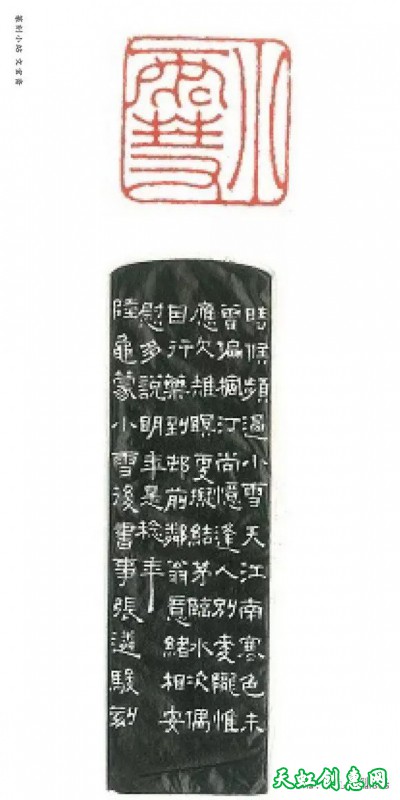 篆刻小站
小雪
時候頻過小雪天江南寒色未
曾徧楓汀尚憶逢人別麥隴惟
應欠雉瞑更擬結茅臨水次偶
因行藥到邨前鄰翁意緒相安
慰多說明年是稔年
陸龜蒙小雪後書事張遴駿刻
天虹创意网